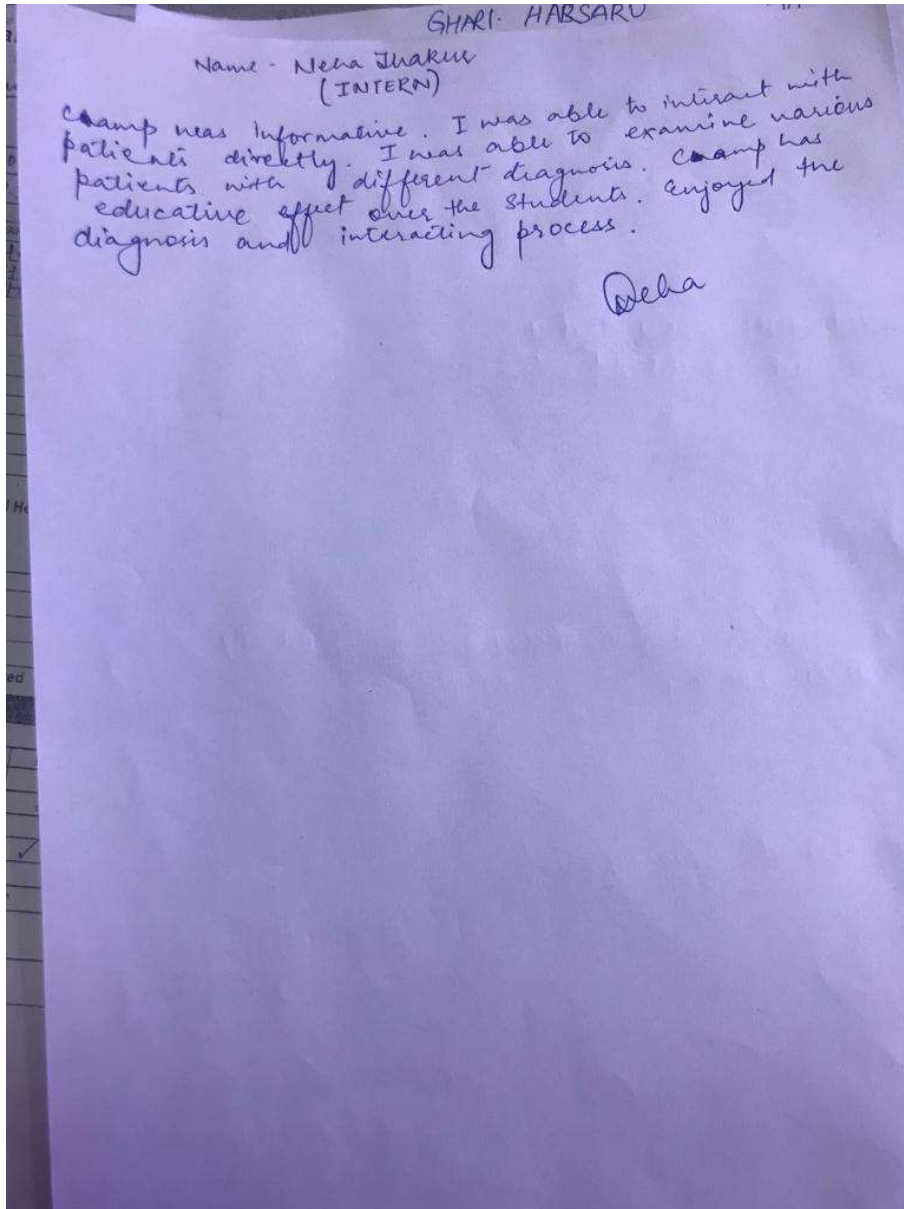 GHARI. HABSARU
Name - Neha Thakur
(INTERN)
Camp was Informative. I was able to interact with
patients directly. I was able to examine various
patients with different diagnosis. Camp has
educative effect over the students. Enjoyed the
diagnosis and interacting process.
Neha
ed